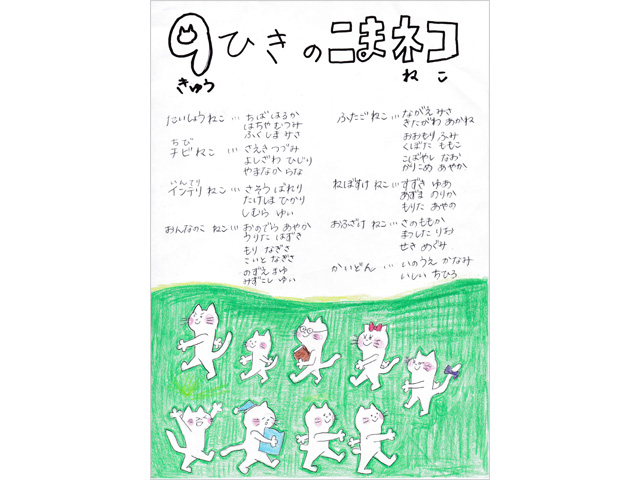 9ひきのこまネコ
きゅう
ねこ
たいしょうねこ…ちば はるか
はちや むつみ
ふくしま みさ
ちび
チビねこ…さえき つづみ
よしざわ ひじり
やまなか らな
いんてり
インテリねこ…さとう ぱれり
たけしま ひかり
しむら ゆい
おんなのこ ねこ…おのでら あやか
うりた はずき
もり なぎさ
こいと なぎさ
のずえ まゆ
みずこし ゆい
ふたごねこ…ながえ みさ
きたがわ あかね
おおもり ふみ
くぼた ももこ
こばやし なお
かりこめ あやか
ねぼすけ ねこ…すずき ゆあ
あずま のりか
もりた あやの
おふざけ ねこ…さの ももか
まつした りお
せき めぐみ
かいどん…いのうえ かなみ
いしい ちひろ